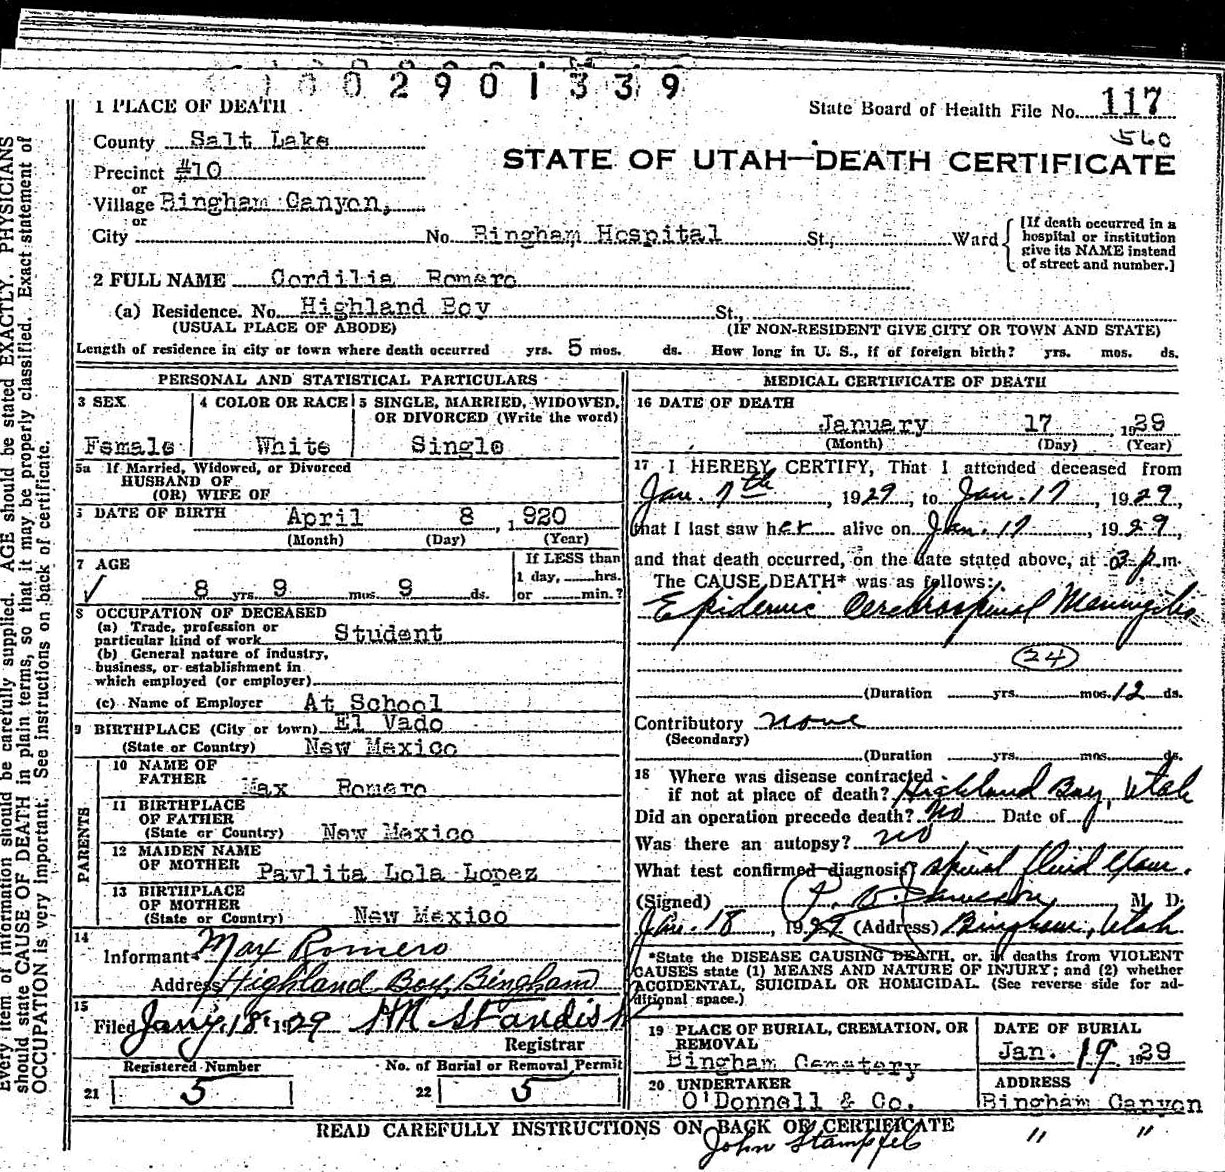 002901339
1 PLACE OF DEATH
State Board of Health File No. 117
560
County Salt Lake
STATE OF UTAH—DEATH CERTIFICATE
Precinct #10
or
Village Bingham Canyon,
or
City No. Bingham Hospital St., Ward
[If death occurred in a
hospital or institution
give its NAME instead
of street and number.]
2 FULL NAME Cordilia Romero
(a) Residence. No. Highland Boy St.,
(USUAL PLACE OF ABODE) (IF NON-RESIDENT GIVE CITY OR TOWN AND STATE)
Length of residence in city or town where death occurred yrs. 5 mos. ds. How long in U. S., if of foreign birth? yrs. mos. ds.
PERSONAL AND STATISTICAL PARTICULARS
3 SEX 4 COLOR OR RACE 5 SINGLE, MARRIED, WIDOWED,
OR DIVORCED (Write the word)
Female White Single
5a If Married, Widowed, or Divorced
HUSBAND OF
(OR) WIFE OF
DATE OF BIRTH April 8, 1920
(Month) (Day) (Year)
7 AGE If LESS than
1 day, hrs.
8 yrs. 9 mos. 9 ds. or min.?
8 OCCUPATION OF DECEASED
(a) Trade, profession or
particular kind of work Student
(b) General nature of industry,
business, or establishment in
which employed (or employer)
(c) Name of Employer At School
9 BIRTHPLACE (City or town) El Vado
(State or Country) New Mexico
PARENTS
10 NAME OF
FATHER Max Romero
11 BIRTHPLACE
OF FATHER
(State or Country) New Mexico
12 MAIDEN NAME
OF MOTHER Pavlita Lola Lopez
13 BIRTHPLACE
OF MOTHER
(State or Country) New Mexico
14
Informant Max Romero
Address Highland Boy, Bingham
15
Filed Jany. 18 1929 HN Standish
Registrar
Registered Number No. of Burial or Removal Permit
21 5 22 5
MEDICAL CERTIFICATE OF DEATH
16 DATE OF DEATH
January 17, 1929
(Month) (Day) (Year)
17 I HEREBY CERTIFY, That I attended deceased from
Jan. 7th, 1929, to Jan. 17, 1929,
that I last saw her alive on Jan. 17, 1929,
and that death occurred, on the date stated above, at 3 p.m.
The CAUSE DEATH* was as follows:
Epidemic Cerebrospinal Meningitis
24
(Duration yrs. mos. 12 ds.
Contributory none
(Secondary)
(Duration yrs. mos. ds.
18 Where was disease contracted
if not at place of death? Highland Boy, Utah
Did an operation precede death? No Date of
Was there an autopsy? no
What test confirmed diagnosis spinal fluid Exam.
(Signed) M. D.
Jan. 18, 1929 (Address) Bingham, Utah.
*State the DISEASE CAUSING DEATH, or, in deaths from VIOLENT
CAUSES state (1) MEANS AND NATURE OF INJURY; and (2) whether
ACCIDENTAL, SUICIDAL OR HOMICIDAL. (See reverse side for ad-
ditional space.)
19 PLACE OF BURIAL, CREMATION, OR
REMOVAL
Bingham Cemetery
DATE OF BURIAL
Jan. 19 1929
20 UNDERTAKER
O'Donnell & Co.
ADDRESS
Bingham Canyon
READ CAREFULLY INSTRUCTIONS ON BACK OF CERTIFICATE
John Stampfel " "
Every item of information should be carefully supplied. AGE should be stated EXACTLY. PHYSICIANS
should state CAUSE OF DEATH in plain terms, so that it may be properly classified. Exact statement of
OCCUPATION is very important. See instructions on back of certificate.